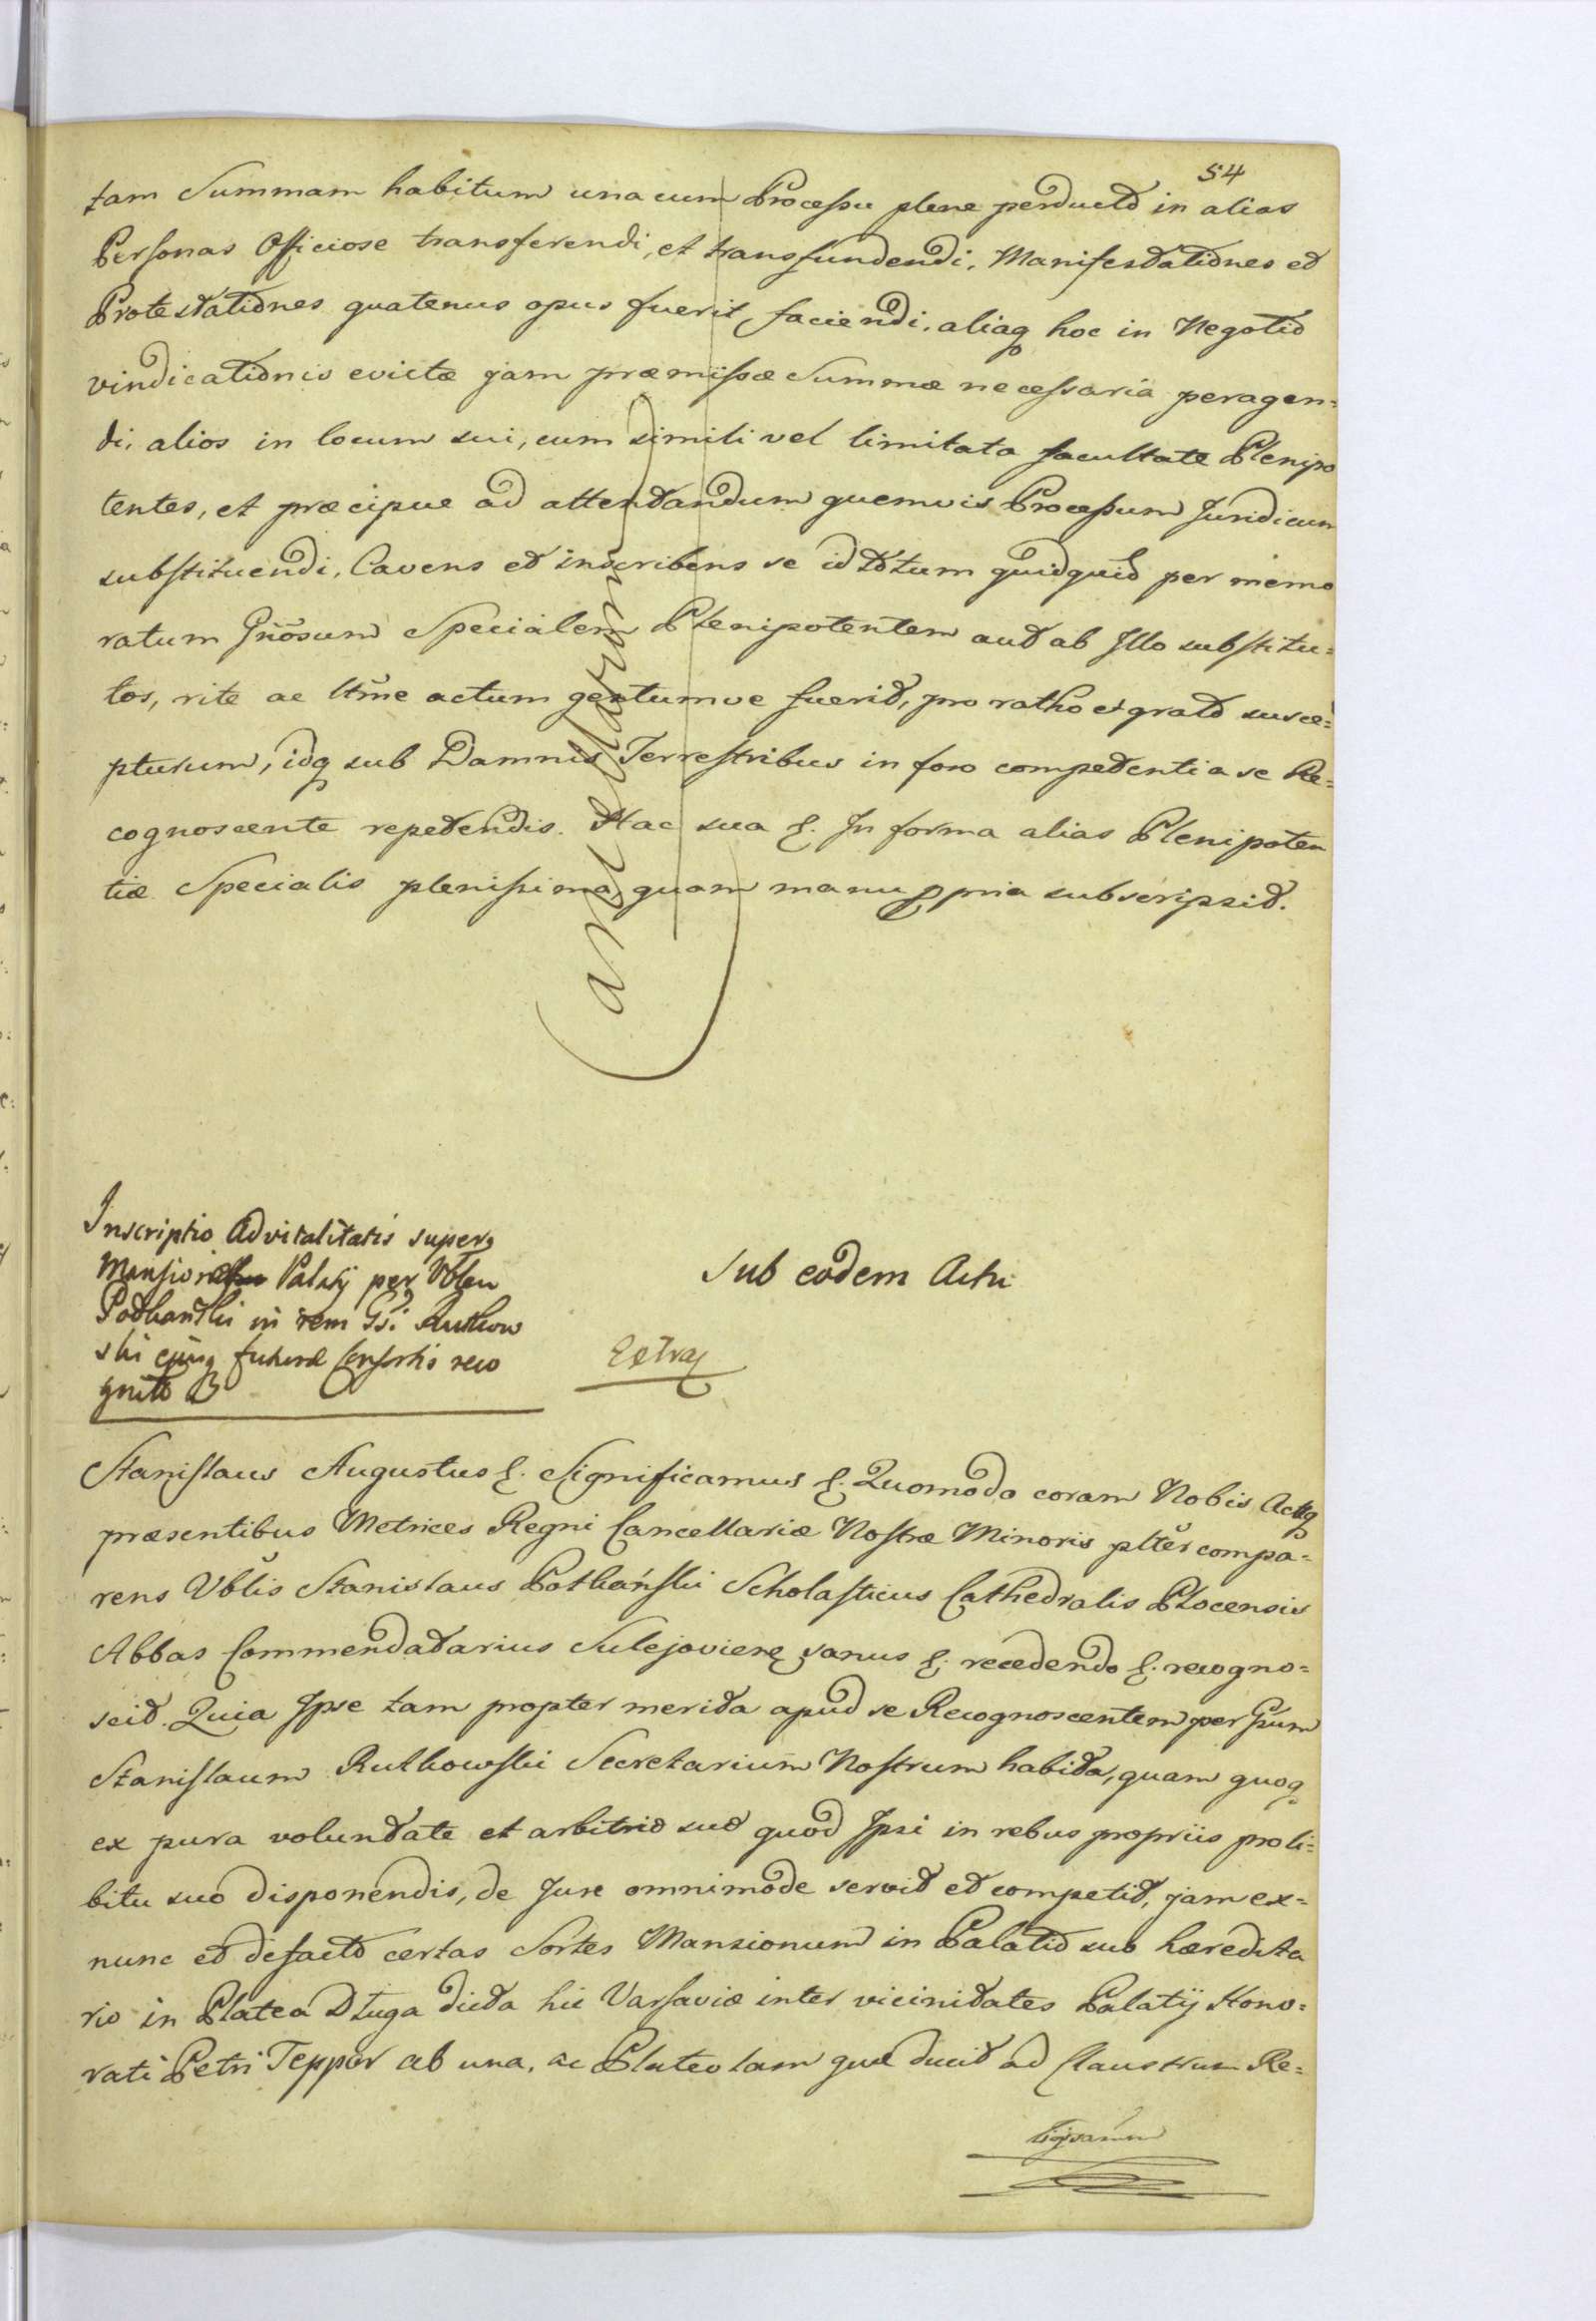 54
tam Summam habitum una cum Processu plene perducto in alias
Personas Officiose transferendi, et transfundendi, Manifestationes et
Protestationes quatenus opus fuerit, faciendi, aliaq hoc in Negotio
vindicationis evictæ jam præmissæ Summæ necessaria peragen=
di, alios in locum sui, cum simili vel limitata facultate Plenipo
tentes, et præcipue ad attentandum quemvis Processum Juridicum
substituendi, Cavens et inscribens se id totum quidquid per memo
ratum Gnosum Specialem Plenipotentem aut ab Illo substitu=
tos, rite ac ltme actum gestumve fuerit, pro ratho et grato susce=
pturum, idq sub Damnis Terrestribus in foro competenti a se Re=
cognoscente repetendis. Hac sua &. In forma alias Plenipoten
tiæ Specialis plenissima, quam manu ppria subscripsit.
Cancellatum
Inscriptio Advitalitatis super
Palatij per Vblem
Pothański in rem Gsi Rutkow
ski ejusq futuræ Consortis reco
gnito
Sub eodem Actu
Extraz
Stanislaus Augustus &. Significamus &. Quomodo coram Nobis Actisq
præsentibus Metrices Regni Cancellariæ Nostræ Minoris plter compa=
rens Vblis Stanislaus Pothański Scholasticus Cathedralis Plocensis
Abbas Commendatarius Sulejovien sanus &. recedendo &. recogno=
scit. Quia Ipse tam propter merita apud se Recognoscentem per Gsum
Stanislaum Rutkowski Secretarium Nostrum habita, quam quoq
ex pura voluntate et arbitrio suo quod Ipsi in rebus propriis pro li=
bitu suo disponendis, de Jure omnimode servit et competit, jam ex=
nunc et defacto certas Sortes Mansionum in Palatio suo hæredita
rio in Platea Długa dicta hic Varsaviæ inter vicinitates Palatij Hono=
rati Petri Tepper ab una, ac Plateolam quæ ducit ad Claustrum Re=